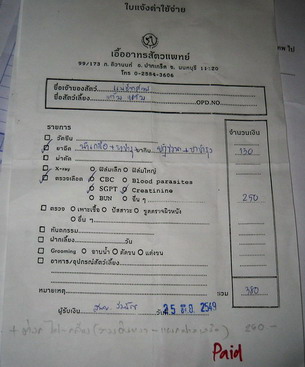 ใบแจ้งค่าใช้จ่าย
เอื้ออาทรสัตวแพทย์
99/173 ถ. ติวานนท์ อ. ปากเกร็ด จ. นนทบุรี 11120
โทร 0-2584-3606
ชื่อเจ้าของสัตว์
ชื่อสัตว์เลี้ยง OPD.NO.
รายการ จำนวนเงิน
วัคซีน
ยาฉีด 130
ผ่าตัด
X-ray ฟิล์มเล็ก ฟิล์มใหญ่
ตรวจเลือด CBC Blood parasites
SGPT Creatinine 250
BUN อื่น ๆ
ตรวจ เพาะเชื้อ ปัสสาวะ ขูดตรวจผิวหนัง
อื่น ๆ
ทันตกรรม
ฝากเลี้ยง วัน
Grooming อาบน้ำ ตัดขน แต่งขน
อาหาร/อุปกรณ์สัตว์เลี้ยง
หมายเหตุ รวม 380
ผู้รับเงิน 25 ต.ค. 2549
Paid